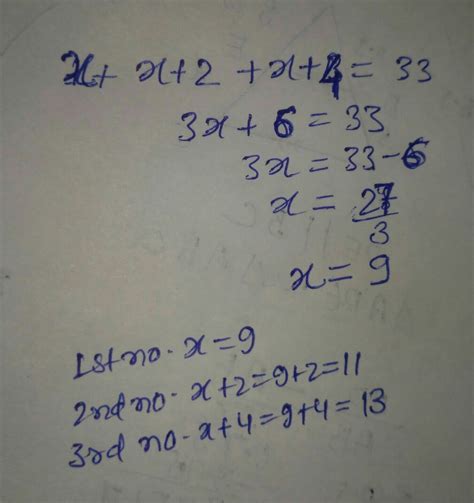 x + x+2 + x+4 = 33
3x + 6 = 33
3x = 33-6
x = 27/3
x = 9
1st no. x = 9
2nd no. x+2=9+2=11
3rd no. x+4=9+4=13